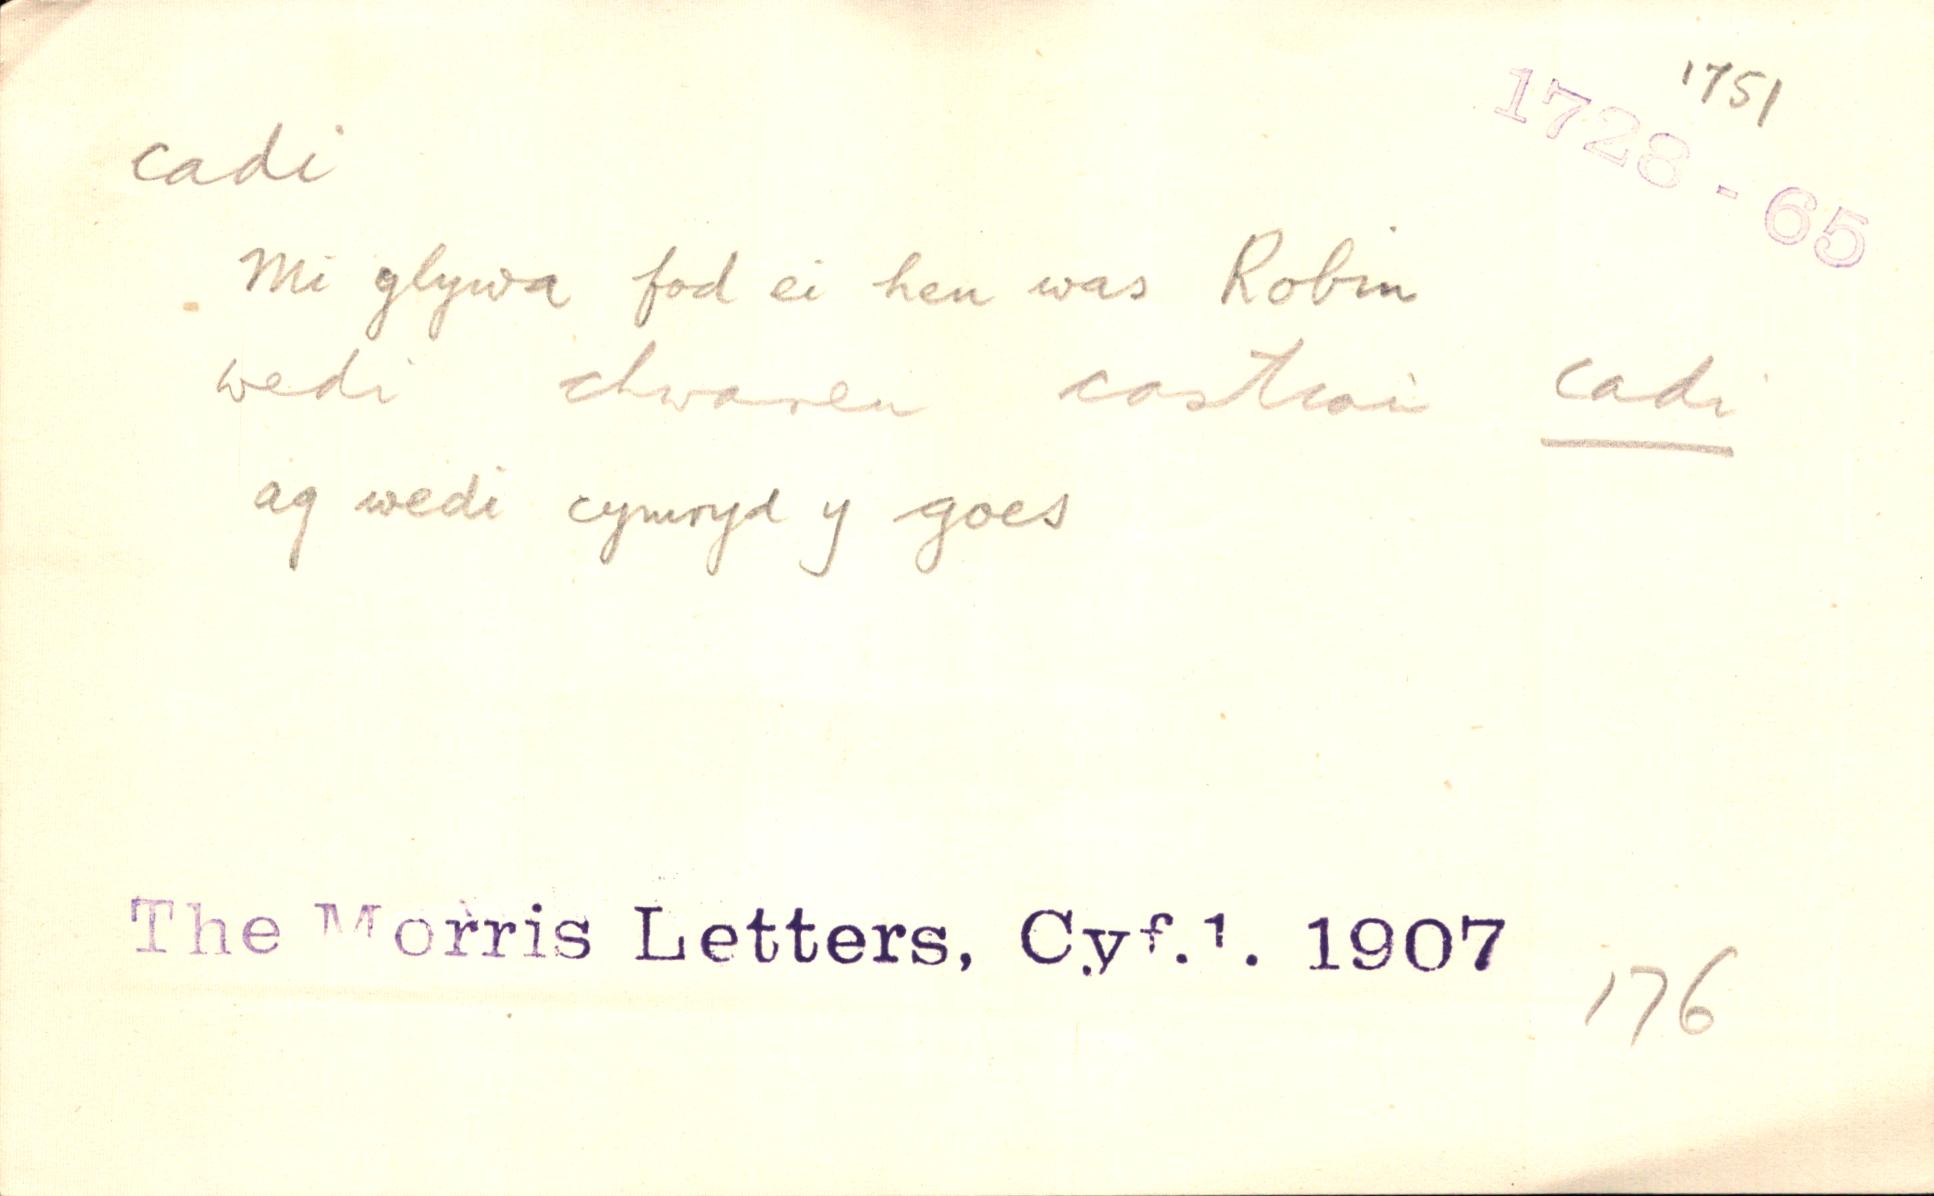 1751
1728 - 65
cadi
Mi glywa fod ei hen was Robin
wedi chwareu castiau cadi
ag wedi cymryd y goes
The Morris Letters, Cyf.1. 1907
176